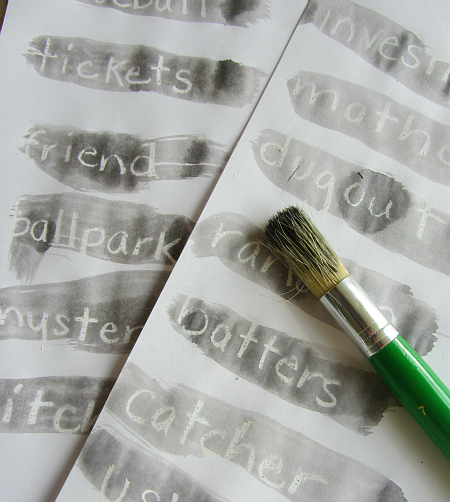 eball
tickets
friend
ballpark
myster
itc
invest
mothe
dugout
ran
batters
catcher
us
7